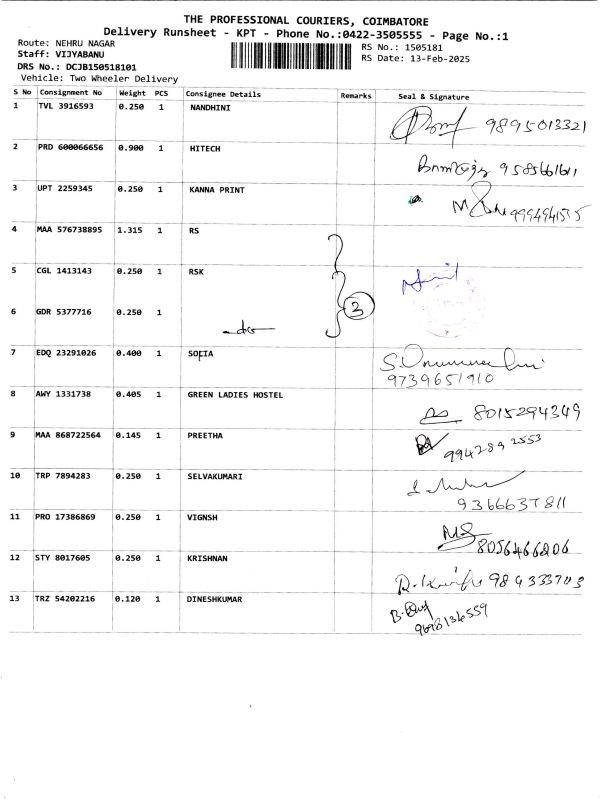 THE PROFESSIONAL COURIERS, COIMBATORE
Delivery Runsheet - KPT - Phone No.:0422-3505555 - Page No.:1
Route: NEHRU NAGAR
Staff: VIJYABANU
DRS No.: DCJB150518101
Vehicle: Two Wheeler Delivery
RS No.: 1505181
RS Date: 13-Feb-2025
S No Consignment No Weight PCS Consignee Details Remarks Seal & Signature
1 TVL 3916593 0.250 1 NANDHINI 9895013321
2 PRD 600066656 0.900 1 HITECH
3 UPT 2259345 0.250 1 KANNA PRINT
4 MAA 576738895 1.315 1 RS
5 CGL 1413143 0.250 1 RSK
3
6 GDR 5377716 0.250 1 -do-
7 EDQ 23291026 0.400 1 SOFIA
9739651910
8 AWY 1331738 0.405 1 GREEN LADIES HOSTEL 8015294349
9 MAA 868722564 0.145 1 PREETHA 9942892553
10 TRP 7894283 0.250 1 SELVAKUMARI
9366637811
11 PRO 17386869 0.250 1 VIGNSH
8056466206
12 STY 8017605 0.250 1 KRISHNAN
13 TRZ 54202216 0.120 1 DINESHKUMAR